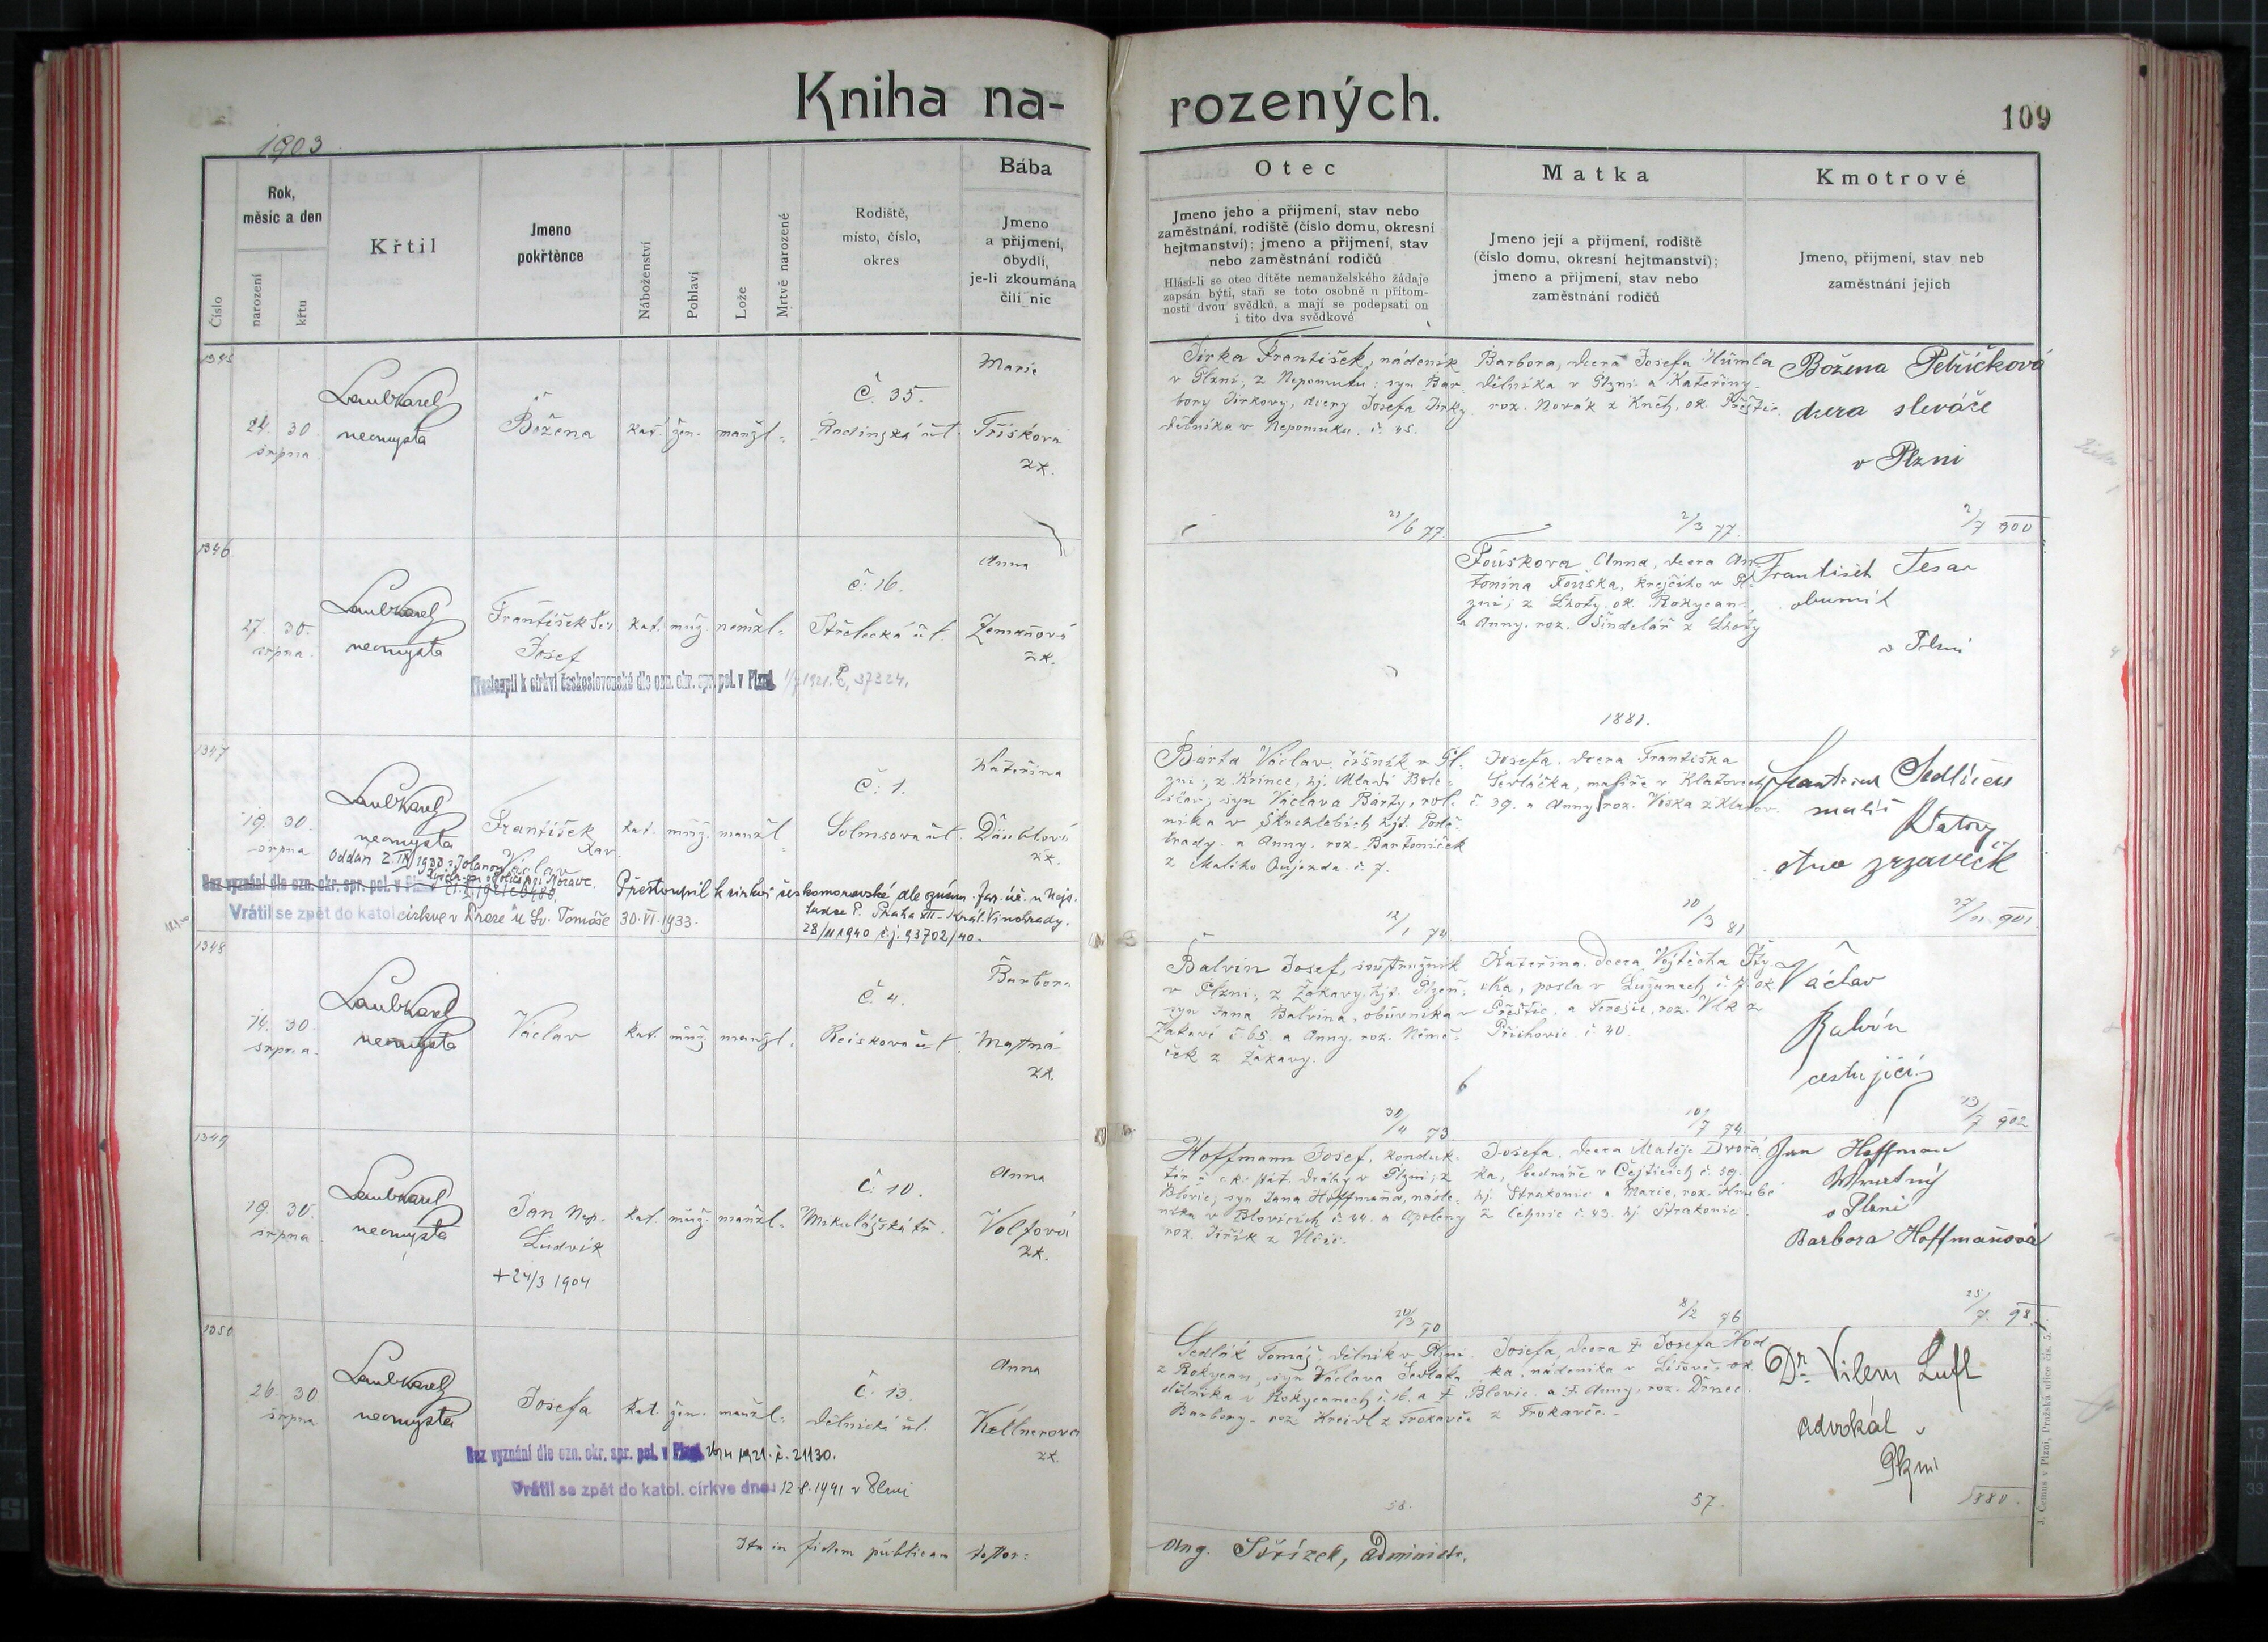 Kniha na-
rozených.
109
1903
Číslo
Rok,
měsíc a den
narození
křtu
Křtil
Jmeno
pokřtěnce
Náboženství
Pohlaví
Lože
Mrtvě narozené
Rodiště,
místo, číslo,
okres
Bába
Jmeno
a přijmení,
obydlí,
je-li zkoumána
čili nic
Otec
Jmeno jeho a přijmení, stav nebo
zaměstnání, rodiště (číslo domu, okresní
hejtmanství); jmeno a přijmení, stav
nebo zaměstnání rodičů
Hlásí-li se otec dítěte nemanželského žádaje
zapsán býti, staň se toto osobně u přítom-
nosti dvou svědků, a mají se podepsati on
i tito dva svědkové
Matka
Jmeno její a přijmení, rodiště
(číslo domu, okresní hejtmanství);
jmeno a přijmení, stav nebo
zaměstnání rodičů
Kmotrové
Jmeno, přijmení, stav neb
zaměstnání jejich
1345
24. 30.
srpna.
Laub Karel
neomysta
Božena
kat. žen. manžl.
Č. 35.
Radinská ul.
Marie
Tříšková
zk.
Jirka František, nádeník
v Plzni, z Nepomuku; syn Bar-
bory Jirkovy, dcery Josefa Jirky,
dělníka v Nepomuku. č. 45.
21/6 77
Barbora, dcera Josefa Hůmla
dělníka v Plzni a Kateřiny
roz. Novák z Kněh, ok. Přeštic.
2/3 77.
Božena Petříčková
dcera slevače
v Plzni
2/7 900
1346
27. 30.
srpna.
Laub Karel
neomysta
František Ser.
Josef
kat. muž. nemžl.
č. 16.
Střelecká ul.
Anna
Zemanová
zk.
Přestoupil k církvi československé dle ozn. okr. spr. pol. v Plzni 1/7 1921. č. 37324.
Fouskova Anna, dcera An-
tonína Fouska, krejčího v Pl-
zni; z Lhoty ok. Rokycan.,
a Anny. roz. Šindelář z Lhoty
1881.
František Tesar
obuvník
v Plzni
1347
19. 30.
srpna
Laub Karel
neomysta
František
Xav.
Václav
kat. muž. manžl.
Č. 1.
Solmsova ul.
Kateřina
Däublová
zk.
Bez vyznání dle ozn. okr. spr. pol. v Plzni
Vrátil se zpět do katol. církve v Praze u Sv. Tomáše 30.VI.1933.
Přestoupil k církvi českomoravské dle oznám. far. úř. u Nejs.
Praha XII - Král. Vinohrady.
28/11 1940 č.j. 93702/40.
Bárta Václav, číšník v Pl-
zni; z Křince, hj. Mladá Bole-
slav; syn Václava Bárty, rol-
níka v Škrchlebích hjt. Podě-
brady. a Anny. roz. Bartoníček
z Malého Oujezda. č. 7.
12/1 74
Josefa, dcera Františka
Sedláčka, malíře v Klatovech
č. 39. a Anny roz. Voska z Klatov.
10/3 81
malíř
Klatovy
27/11. 901.
1348
14. 30.
srpna.
Laub Karel
neomysta
Václav
kat. muž. manžl.
Č. 4.
Reiskova ul.
Barbora
Mastná
zk.
Balvín Josef, soustružník
v Plzni; z Žákavy, hjt. Plzeň;
syn Jana Balvína, obuvníka v
Žákavě č. 65. a Anny. roz. Něme-
ček z Žákavy.
30/4 73.
Kateřina, dcera Vojtěcha Sty-
cha, posla v Lužanech č. 7. ok.
Přeštic, a Terezie, roz. Vlk z
Příchovic č. 40.
10/7 74.
Václav
Balvín
cestující
13/7 902
1349
19. 30.
srpna.
Laub Karel
neomysta
Jan Nep.
Ludvík
+ 24/3 1904
kat. muž. manžl.
Č. 10.
Mikulášská tř.
Anna
Volfová
zk.
Hoffmann Josef, konduk-
tér c. k. stát. dráhy v Plzni; z
Blovic; syn Jana Hoffmanna, náde-
níka v Blovicích č. 44. a Apoleny
roz. Jiřík z Vlčic.
20/3 70
Josefa, dcera Matěje Dvořá-
ka, bednáře v Čejticích č. 39.
hj. Strakonic a Marie, roz. Hrubé
č. 43. hj Strakonic.
8/2 76
Jan Hoffman
Vrátný
v Plzni
Barbora Hoffmanová
25/7. 98.
1350
26. 30
srpna
Laub Karel
neomysta
Josefa
kat. žen. manžl.
Č. 13.
Dělnická ul.
Anna
Kellnerová
zk.
Bez vyznání dle ozn. okr. spr. pol. v Plzni 1921. č. 21130.
Vrátil se zpět do katol. církve dne 12.8.1941 v Plzni
Sedlák Tomáš, dělník v Plzni
z Rokycan, syn Václava Sedláka
dělníka v Rokycanech č. 16. a †
Barbory roz. Kreidl z Trokavče
58.
Josefa, dcera † Josefa Hod-
ka, nádeníka v Lišově. ok.
Blovic. a † Anny, roz. Drnec
z Trokavče.
57.
Dr. Vilém Lufl
advokát v
Plzni
1880.
Ita in fidem publicam testor:
Aug. Střízek, administr.
J. Černus v Plzni, Pražská ulice čís. 5.